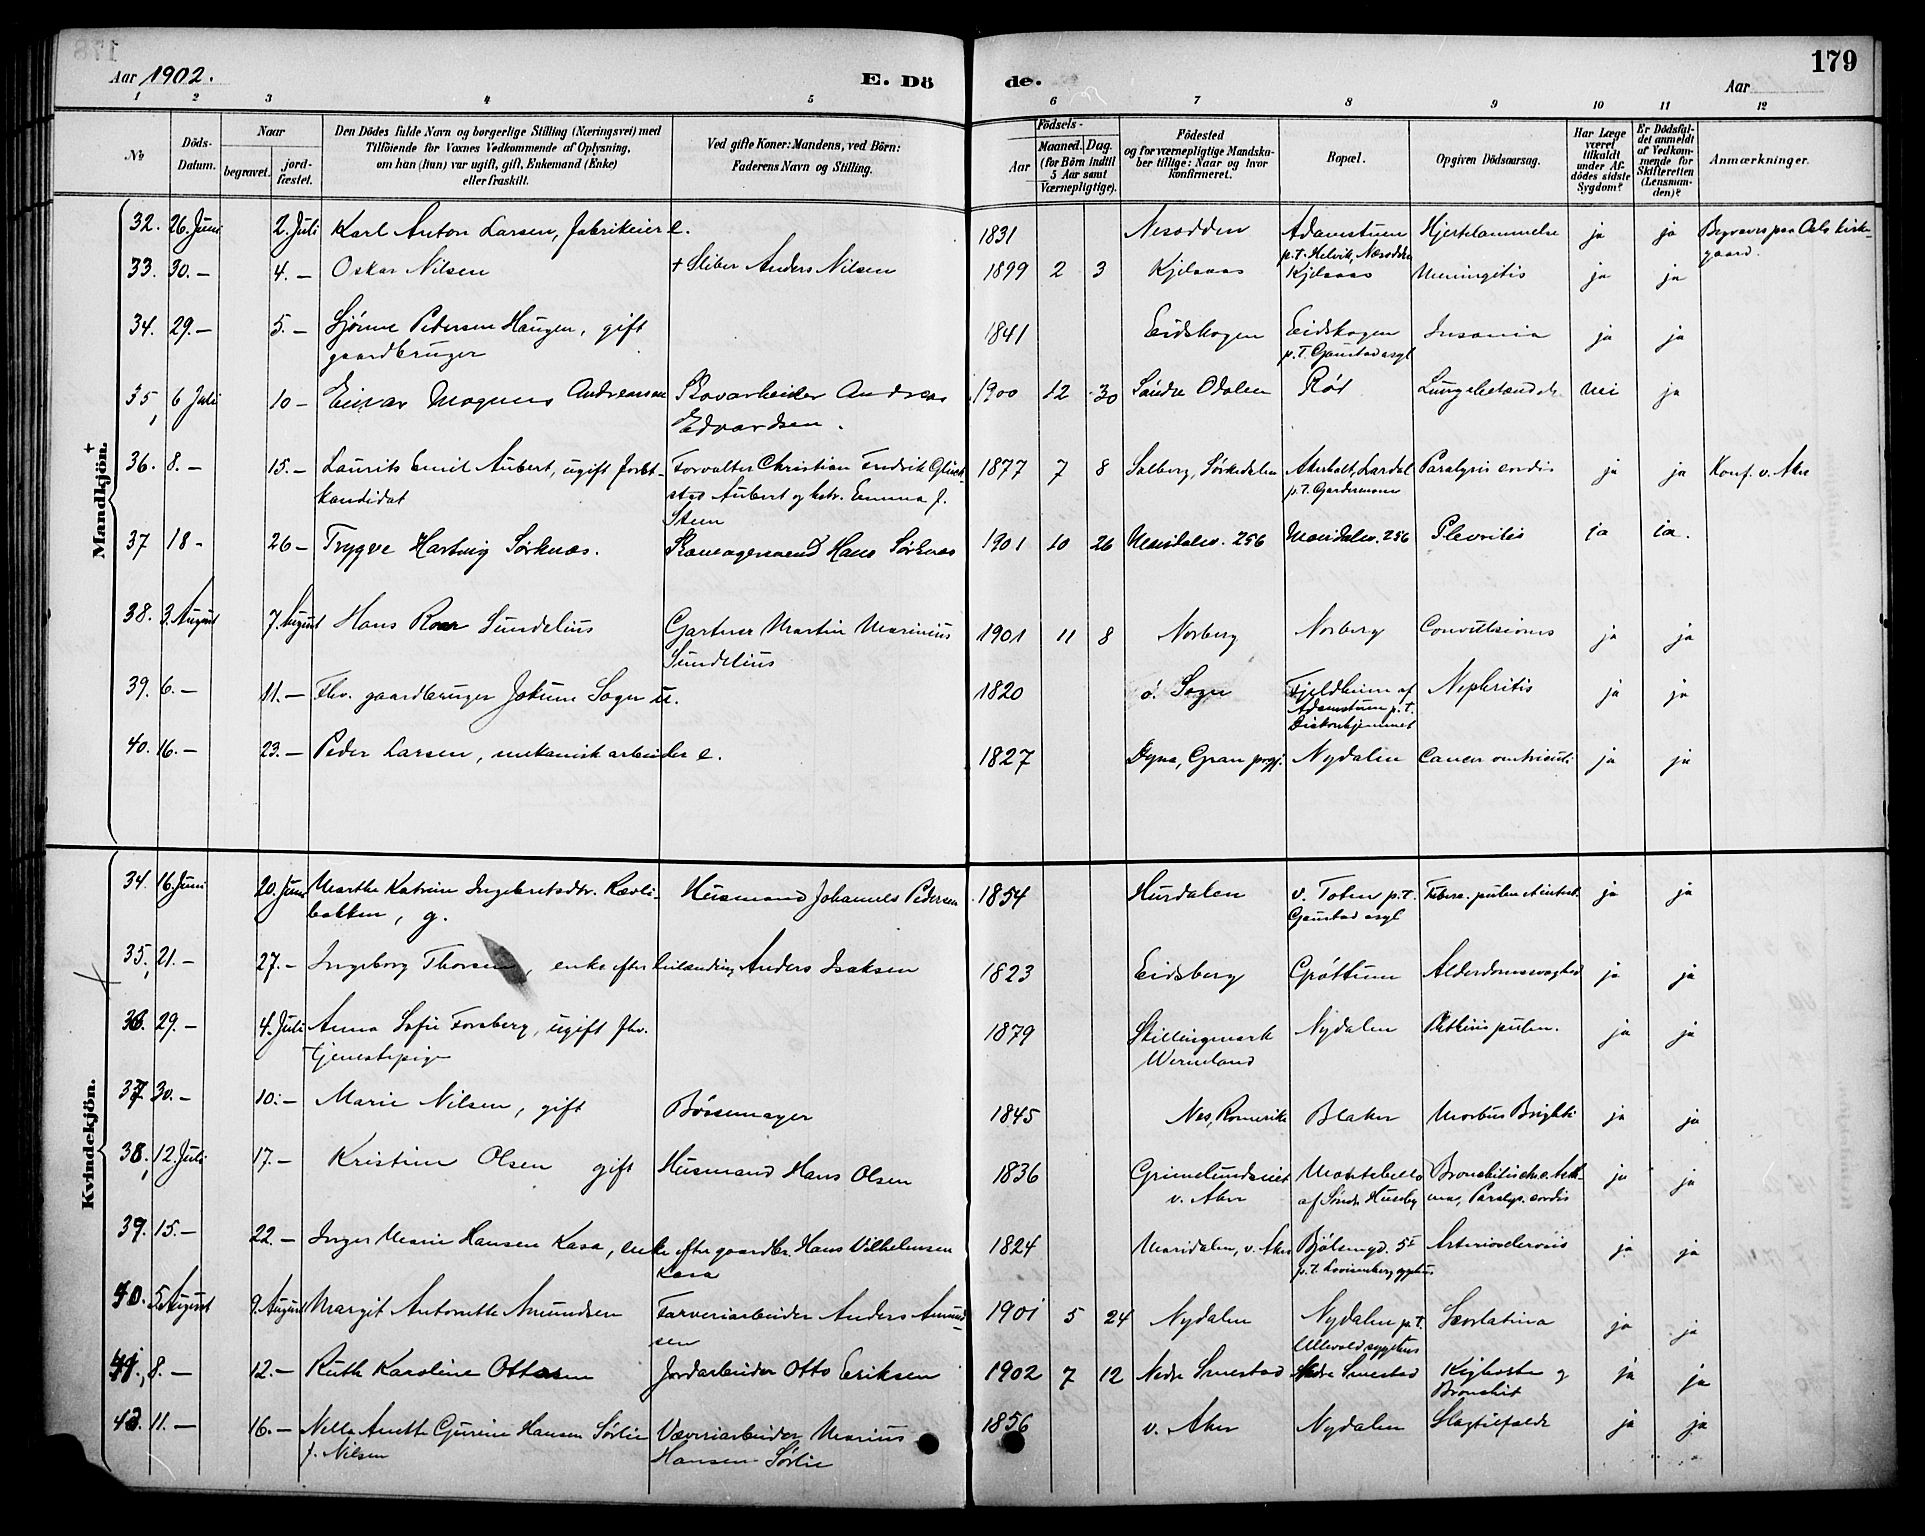 178
179
Aar 1902.
E. Dö
de.
Aar
1 2 3 4 5 6 7 8 9 10 11 12
№
Döds-Datum.
Naar
begravet.
jord-fæstet.
Den Dödes fulde Navn og borgerlige Stilling (Næringsvei) med
Tilföiende for Voxnes Vedkommende af Oplysning,
om han (hun) var ugift, gift, Enkemand (Enke)
eller fraskilt.
Ved gifte Koner: Mandens, ved Börn:
Faderens Navn og Stilling.
Födsels-
Aar
Maaned. Dag.
(for Börn indtil
5 Aar samt
Værnepligtige).
Födested
og for værnepligtige Mandska-
ber tillige: Naar og hvor
konfirmeret.
Bopæl.
Opgiven Dödsaarsag.
Har Læge
været
tilkaldt
under Af-
dödes sidste
Sygdom?
Er Dödsfal-
det anmeldt
af Vedkom-
mende for
Skifteretten
(Lensman-
den)?
Anmærkninger.
Mandkjön.
32. 26. Juni 2. Juli Karl Anton Larsen, fabrikeier e. 1831 Nesodden Adamstuen Hjertelammelse ja ja Begraves paa Oslo kirke-
p.t. Helvik, Næsodden gaard.
33. 30. — 4. — Oskar Nilsen + Sliber Anders Nilsen 1899 2 3 Kjelsaas Kjelsaas Meningitis ja ja
34. 29. — 5. — Pedersen Haugen, gift 1841 Eidskogen Eidskogen Insania ja ja
gaardbruger p.t. Gaustad asyl
35, 6 Juli 10 — Einar Magnus Andreassen Skovarbeider Andreas 1900 12 30 Söndre Odalen Röd nei ja
Edvardsen.
36. 8. — 15. — Laurits Emil Aubert, ugift forst- Forvalter Christian Fredrik Glück- 1877 7 8 Solberg, Sörkedalen Lardal Paralysis cordis ja ja Konf. v. Aker
kandidat stad Aubert og hstr. Emma f. p.t. Gardermoen
Steen
37 18 - 26 — Trygve Hartvig Sörknæs. Hans Sörknæs 1901 10 26 Maridalsv. 256 Maridalsv. 256 Plevritis ja ja.
38. 3. August 7. August Hans Roar Sundelius Gartner Martin Marinius 1901 11 8 Norberg Norberg Convulsiones ja ja
Sundelius
39. 6. — 11. — Fhv. gaardbruger Jokum Sogn u. 1820 ö. Sogn Fjeldheim af Nephritis ja ja
Adamstuen p.t.
Diakonhjemmet
40. 16. — 23. — Peder Larsen, mekanisk arbeider e. 1827 Gran prgj. Nydalen Cancer ventriculi ja ja
Kvindekjön.
34. 16. Juni 20. Juni Marthe Katrine Ingebretsdtr. Rævli- Husmand Johannes Pedersen 1854 Hurdalen v. Toten p.t. ja ja
bakken, g. Gaustad asyl
35, 21. — 27. — Ingeborg Thorsen, enke efter Anders Isaksen 1823 Eidsberg Gröttum Alderdomssvaghed ja ja
36. 29. — 4. Juli Anna Sofie Forsberg, ugift fhv. 1879 Skillingmark Nydalen Phthisis pulm. ja ja
tjenestepige Wermland
37 30. — 10. — Marie Nilsen, gift Börsemager 1845 Nes, Romerike Blaker Morbus Brightii ja ja
38, 12. Juli 17. — Kristine Olsen gift Husmand Hans Olsen 1836 Grimelundseiet Montebello Bronchitis chr. Asth- ja ja
v. Aker af Söndre Huseby ma, Paralys. cordis
39. 15. — 22. — Inger Marie Hansen Kasa, enke efter gaardbr. Hans Vilhelmsen 1824 Maridalen, v. Aker Bjölsengd. 5 Arteriosclerosis ja ja
Kasa p.t. Lovisenberg sygehus
40. 5. August 9. August Margit Antonette Amundsen Farveriarbeider Anders Amund- 1901 5 24 Nydalen Nydalen p.t. Scarlatina ja ja
sen Ullevold sygehus
41, 8. — 12. — Ruth Karoline Ottosen Jordarbeider Otto Eriksen 1902 7 12 Nedre Smestad Nedre Smestad Kighoste og ja ja
Bronchit
42. 11. — 16. — Nelle Anette Gurine Hansen Sörlie Væveriarbeider Marius 1856 v. Aker Nydalen Slagtilfælde ja ja
f. Nilsen Hansen Sörlie